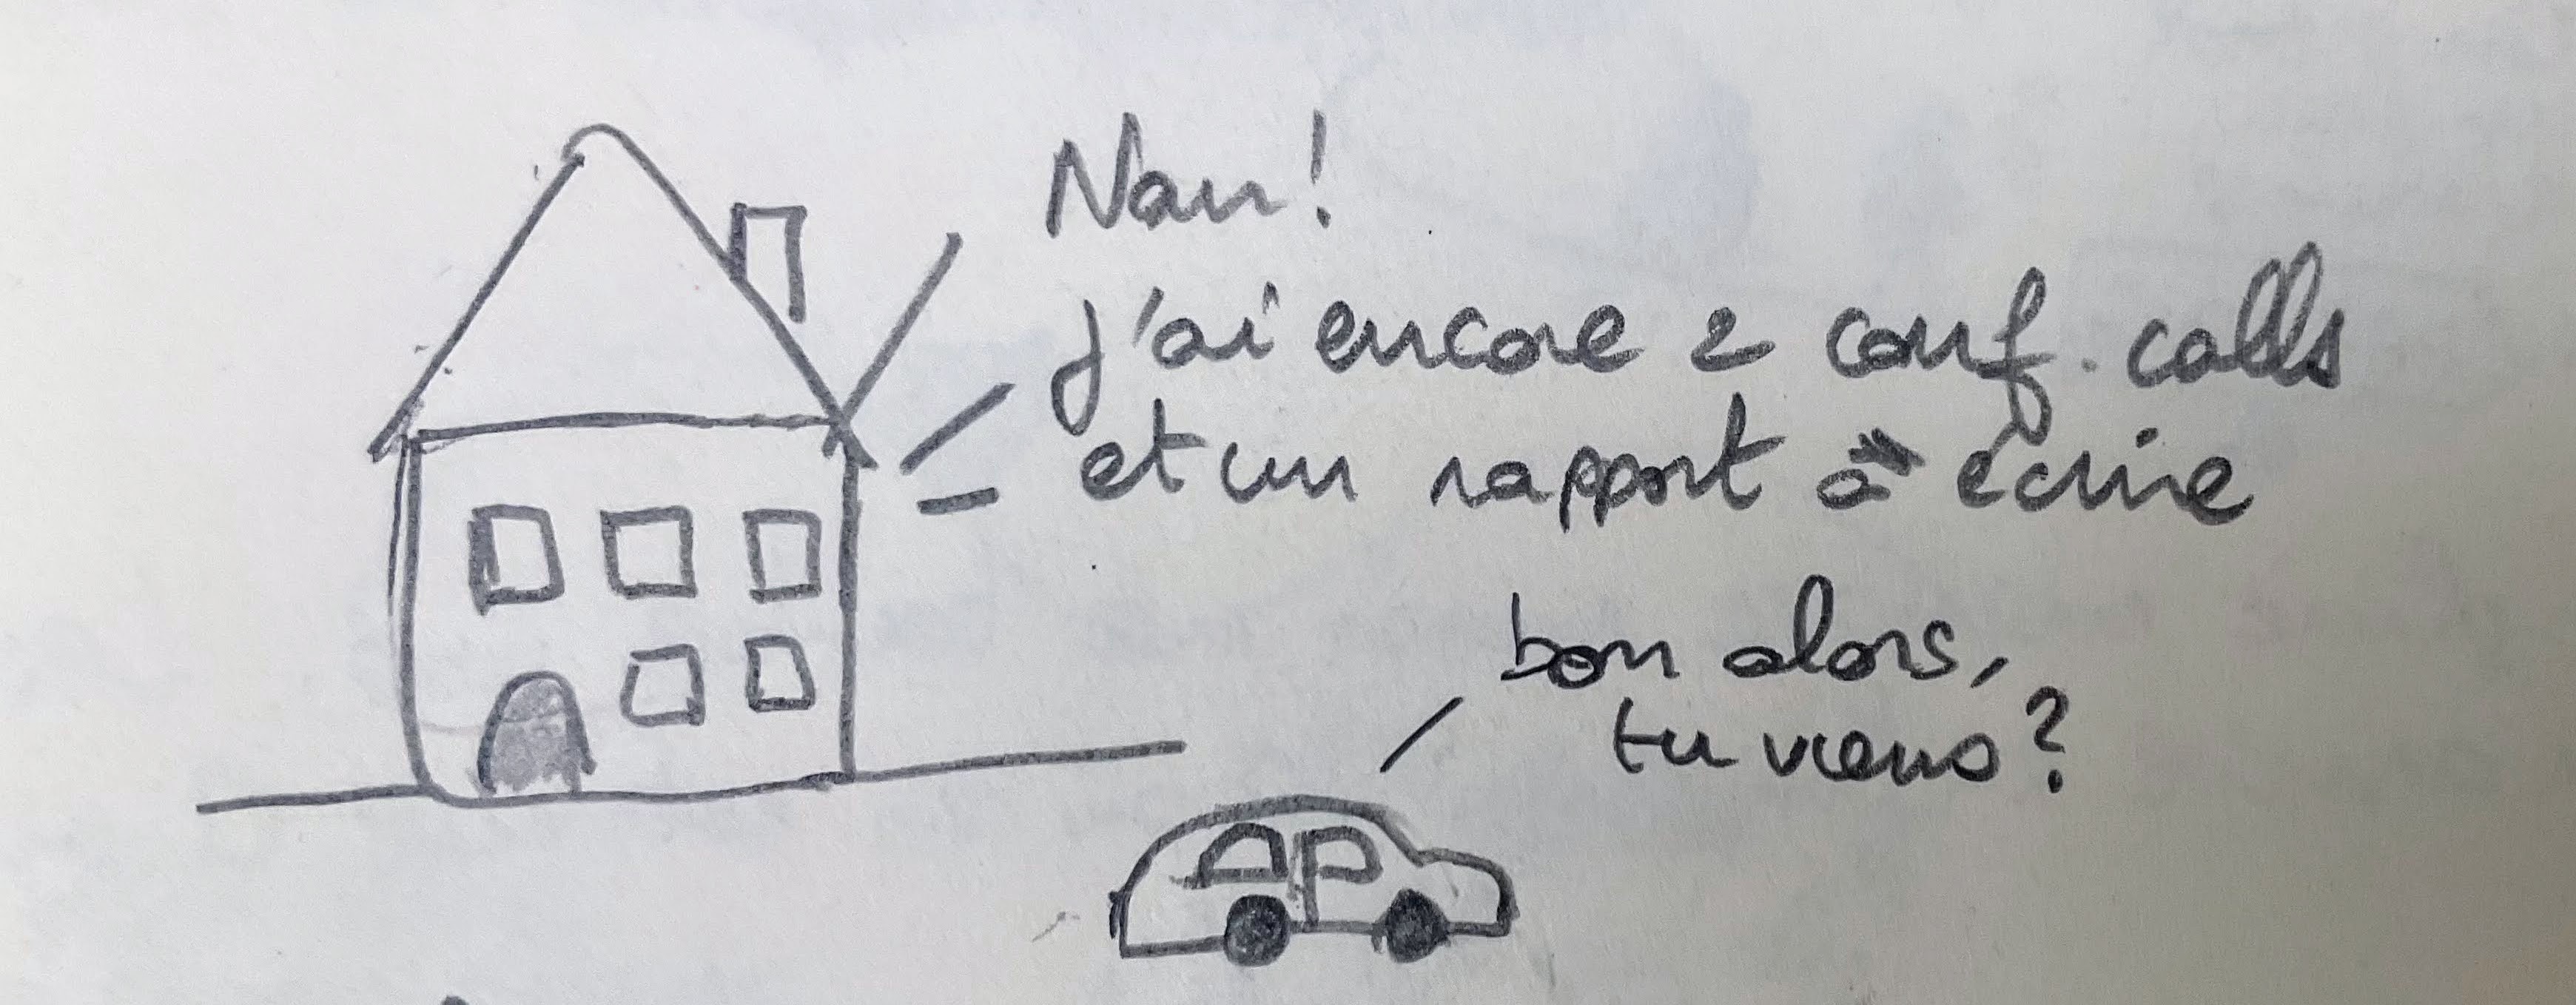 Nan!
j'ai encore 2 conf. calls
et un rapport à écrire
bon alors,
tu viens?